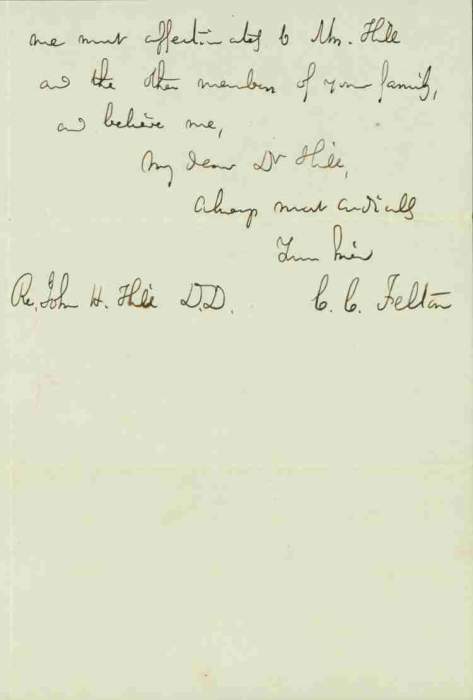 me most affectionately to Mrs. Hill
and the other members of your family,
and believe me,
My dear Dr Hill,
Always most cordially
Your friend
Rev. John H. Hill D.D. C. C. Felton